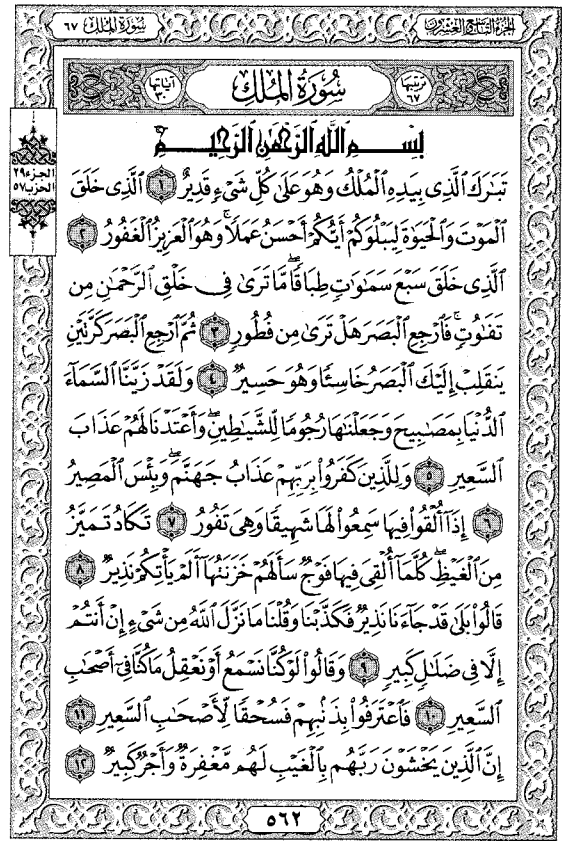 الجزء التاسع والعشرون
سورة الملك ٦٧
ترتيبها ٦٧
سُورَةُ المُلْكِ
آياتها ٣٠
الجزء ٢٩
الحزب ٥٧
بِسْمِ اللَّهِ الرَّحْمَٰنِ الرَّحِيمِ
تَبَٰرَكَ ٱلَّذِى بِيَدِهِ ٱلْمُلْكُ وَهُوَ عَلَىٰ كُلِّ شَىْءٍ قَدِيرٌ ١ ٱلَّذِى خَلَقَ
ٱلْمَوْتَ وَٱلْحَيَوٰةَ لِيَبْلُوَكُمْ أَيُّكُمْ أَحْسَنُ عَمَلًا ۚ وَهُوَ ٱلْعَزِيزُ ٱلْغَفُورُ ٢
ٱلَّذِى خَلَقَ سَبْعَ سَمَٰوَٰتٍ طِبَاقًا ۖ مَّا تَرَىٰ فِى خَلْقِ ٱلرَّحْمَٰنِ مِن
تَفَٰوُتٍ ۖ فَٱرْجِعِ ٱلْبَصَرَ هَلْ تَرَىٰ مِن فُطُورٍ ٣ ثُمَّ ٱرْجِعِ ٱلْبَصَرَ كَرَّتَيْنِ
يَنقَلِبْ إِلَيْكَ ٱلْبَصَرُ خَاسِئًا وَهُوَ حَسِيرٌ ٤ وَلَقَدْ زَيَّنَّا ٱلسَّمَآءَ
ٱلدُّنْيَا بِمَصَٰبِيحَ وَجَعَلْنَٰهَا رُجُومًا لِّلشَّيَٰطِينِ ۖ وَأَعْتَدْنَا لَهُمْ عَذَابَ
ٱلسَّعِيرِ ٥ وَلِلَّذِينَ كَفَرُوا۟ بِرَبِّهِمْ عَذَابُ جَهَنَّمَ ۖ وَبِئْسَ ٱلْمَصِيرُ
٦ إِذَآ أُلْقُوا۟ فِيهَا سَمِعُوا۟ لَهَا شَهِيقًا وَهِىَ تَفُورُ ٧ تَكَادُ تَمَيَّزُ
مِنَ ٱلْغَيْظِ ۖ كُلَّمَآ أُلْقِىَ فِيهَا فَوْجٌ سَأَلَهُمْ خَزَنَتُهَآ أَلَمْ يَأْتِكُمْ نَذِيرٌ ٨
قَالُوا۟ بَلَىٰ قَدْ جَآءَنَا نَذِيرٌ فَكَذَّبْنَا وَقُلْنَا مَا نَزَّلَ ٱللَّهُ مِن شَىْءٍ إِنْ أَنتُمْ
إِلَّا فِى ضَلَٰلٍ كَبِيرٍ ٩ وَقَالُوا۟ لَوْ كُنَّا نَسْمَعُ أَوْ نَعْقِلُ مَا كُنَّا فِىٓ أَصْحَٰبِ
ٱلسَّعِيرِ ١٠ فَٱعْتَرَفُوا۟ بِذَنۢبِهِمْ فَسُحْقًا لِّأَصْحَٰبِ ٱلسَّعِيرِ ١١
إِنَّ ٱلَّذِينَ يَخْشَوْنَ رَبَّهُم بِٱلْغَيْبِ لَهُم مَّغْفِرَةٌ وَأَجْرٌ كَبِيرٌ ١٢
٥٦٢